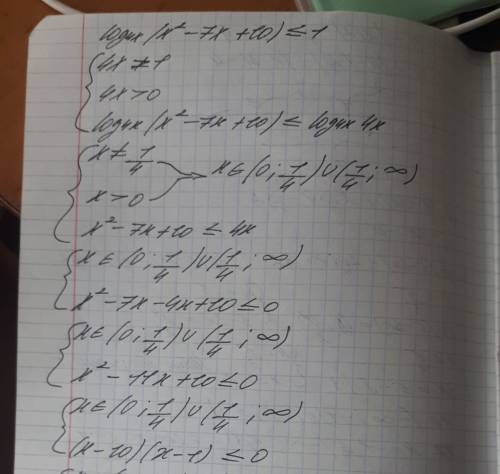 log4x(x² - 7x + 10) ≤ 1
4x ≠ 1
4x > 0
log4x(x² - 7x + 10) ≤ log4x 4x
x ≠ 1/4
x ∈ (0; 1/4) ∪ (1/4; ∞)
x > 0
x² - 7x + 10 ≤ 4x
x ∈ (0; 1/4) ∪ (1/4; ∞)
x² - 7x - 4x + 10 ≤ 0
x ∈ (0; 1/4) ∪ (1/4; ∞)
x² - 11x + 10 ≤ 0
x ∈ (0; 1/4) ∪ (1/4; ∞)
(x - 10)(x - 1) ≤ 0